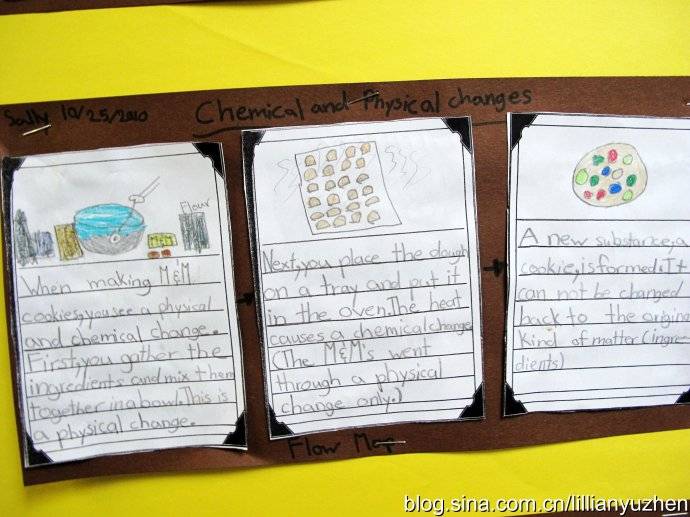 Sally 10/25/2010
Chemical and Physical changes
Flour
When making M&M
cookies, you see a physical
and chemical change.
First, you gather the
ingredients and mix them
together in a bowl. This is
a physical change.
Next, you place the dough
on a tray and put it
in the oven. The heat
causes a chemical change
(The M&M's went
through a physical
change only.)
A new substance, a
cookie, is formed. It
can not be changed
back to the origina
kind of matter (ingre-
dients)
Flow Map
blog.sina.com.cn/lillianyuzhen